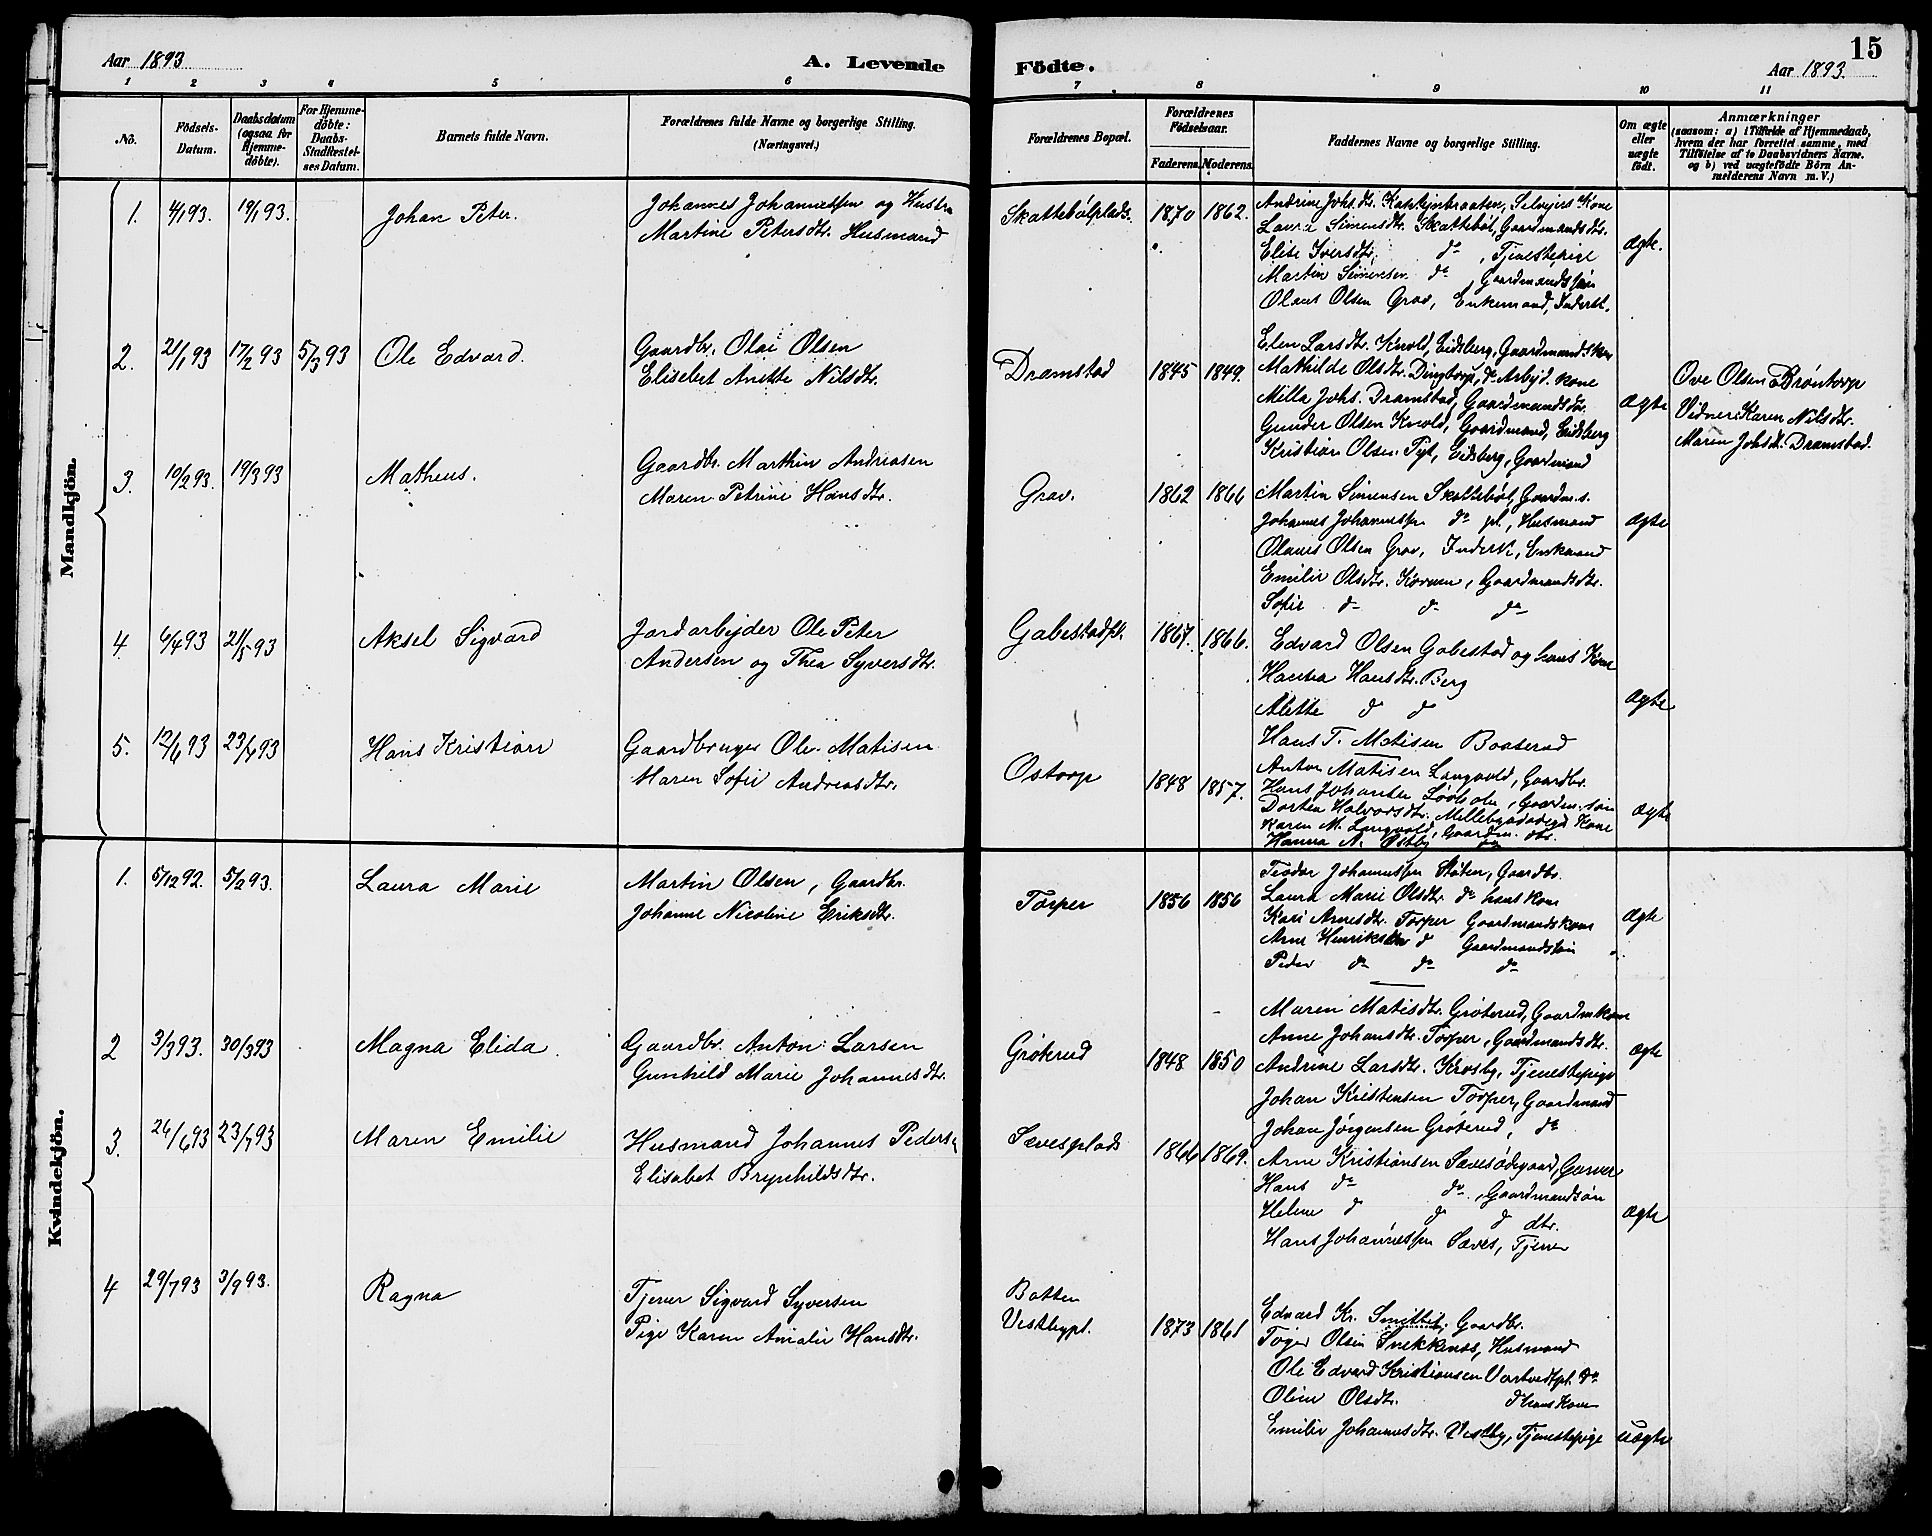 15
Aar 1893
A. Levende Födte.
Aar 1893.
1 2 3 4 5 6 7 8 9 10 11
No.
Födsels-Datum.
Daabsdatum (ogsaa for Hjemme-döbte).
For Hjemme-döbte: Daabs-Stadfæstel-ses Datum.
Barnets fulde Navn.
Forældrenes fulde Navne og borgerlige Stilling. (Næringsvei.)
Forældrenes Bopæl.
Forældrenes Födselsaar.
Faderens. Moderens.
Faddernes Navne og borgerlige Stilling.
Om ægte eller uægte födt.
Anmærkninger
(saasom: a) i Tilfælde af Hjemmedaab, hvem der har forrettet samme, med Tilföielse af to Daabsvidners Navne. og b) ved uægtefödte Börn An-melderens Navn m. V.)
Mandkjön.
1. 4/1 93. 19/1 93. Johan Peter.
Johannes Johannessen og Hustru
Martine Petersdtr. Husmand
Skattebølplads. 1870 1862.
Andrine Johs.dtr. Selvejers Kone
Laura Simensdtr. Skattebøl, Gaardmandsdtr.
Elise Iversdtr. do, Tjenestepige
Martin Simensen do Gaardmandssøn
Olaus Olsen Grav, Enkemand, Inderst.
Ægte.
2. 21/1 93 17/2 93 5/3 93 Ole Edvard.
Gaardbr. Olai Olsen
Elisebet Anette Nilsdtr.
Dramstad 1845 1849.
Elen Larsdtr. Knold, Eidsberg, Gaardmandskone
Mathilde Olsdtr. Dingtorp, do Arbejd. kone
Milla Johs. Dramstad, Gaardmandsdtr.
Gunder Olsen Knold, Gaardmand, Eidsberg
Kristian Olsen Eidsberg, Gaardmand
Ægte
Ove Olsen Brøntorp
Vidner: Karen Nilsdtr.
Maren Johsdtr. Dramstad.
3. 10/2 93. 19/3 93 Matheus.
Gaardbr. Marthin Andreasen
Maren Petrine Hansdtr.
Grav. 1862 1866
Martin Simensen Skattebøl, Gaardm. s.
Johannes Johannessen do pl., Husmand
Olaus Olsen Grav, Inderst, Enkmand
Emilie Olsdtr. Gaardmandsdtr.
Sofie do do do
Ægte
4. 6/4 93 21/5 93 Aksel Sigvard
Jordarbejder Ole Peter
Andersen og Thea Syversdtr.
Gabestadpl. 1867. 1866.
Edvard Olsen Gabestad og hans Kone
Hansdtr. Berg
Alette do do
Hans T. Matisen Baaterud
Ægte
5. 12/6 93 23/7 93 Hans Kristian
Gaardbruger Ole Matisen
Maren Sofie Andreasdtr.
Ostorp 1848 1857.
Anton Matisen Langvold, Gaardbr.
Hans Johansen Gaardm. søn
Dorthea Halvorsdtr. Kone
Karen M. Langvold, Gaardm. dtr.
Hanna N. Østby do
Ægte
Kvindekjön.
1. 5/12 92. 5/2 93. Laura Marie
Martin Olsen, Gaardbr.
Johanne Nicoline Eriksdtr.
Torper 1856 1856
Teodor Johannessen Støten, Gaardbr.
Laura Marie Olsdtr. do hans Kone
Kari Arnesdtr. Torper Gaardmandskone
Arne Henriksen do Gaardmandssøn
Peder do do do
Ægte
2 3/3 93. 30/3 93 Magna Elida.
Gaardbr. Anton Larsen
Gunhild Marie Johannesdtr.
Grøterud 1848 1850
Maren Matisdtr. Grøterud, Gaardmkone
Anne Johansdtr. Torper, Gaardmandsdtr.
Andrine Larsdtr. Krosby, Tjenestepige
Johan Kristensen Torper, Gaardmand
Johan Jørgensen Grøterud, do
Ægte
3. 26/6 93 23/7 93 Maren Emilie
Husmand Johannes Peders.
Elisabet Brynhildsdtr.
Sævesplads 1866 1869.
Arne Kristiansen Sævesødegaard, Garver
Hans do do, Gaardmandsøn
Helene do do do dtr.
Hans Johannessen Sæves, Tjener
Ægte
4 29/7 93 3/9 93. Ragna
Tjener Sigvard Syversen
Pige Karen Amalie Hansdtr.
Botten
Vestbypl. 1873 1861
Edvard Kr. Gaardbr.
Tøger Olsen Snekkenes, Husmand
Ole Edvard Kristiansen Vartvedtpl. do
Oline Olsdtr. do hans Kone
Emilie Johannesdtr. Vestby, Tjenestepige
uægte